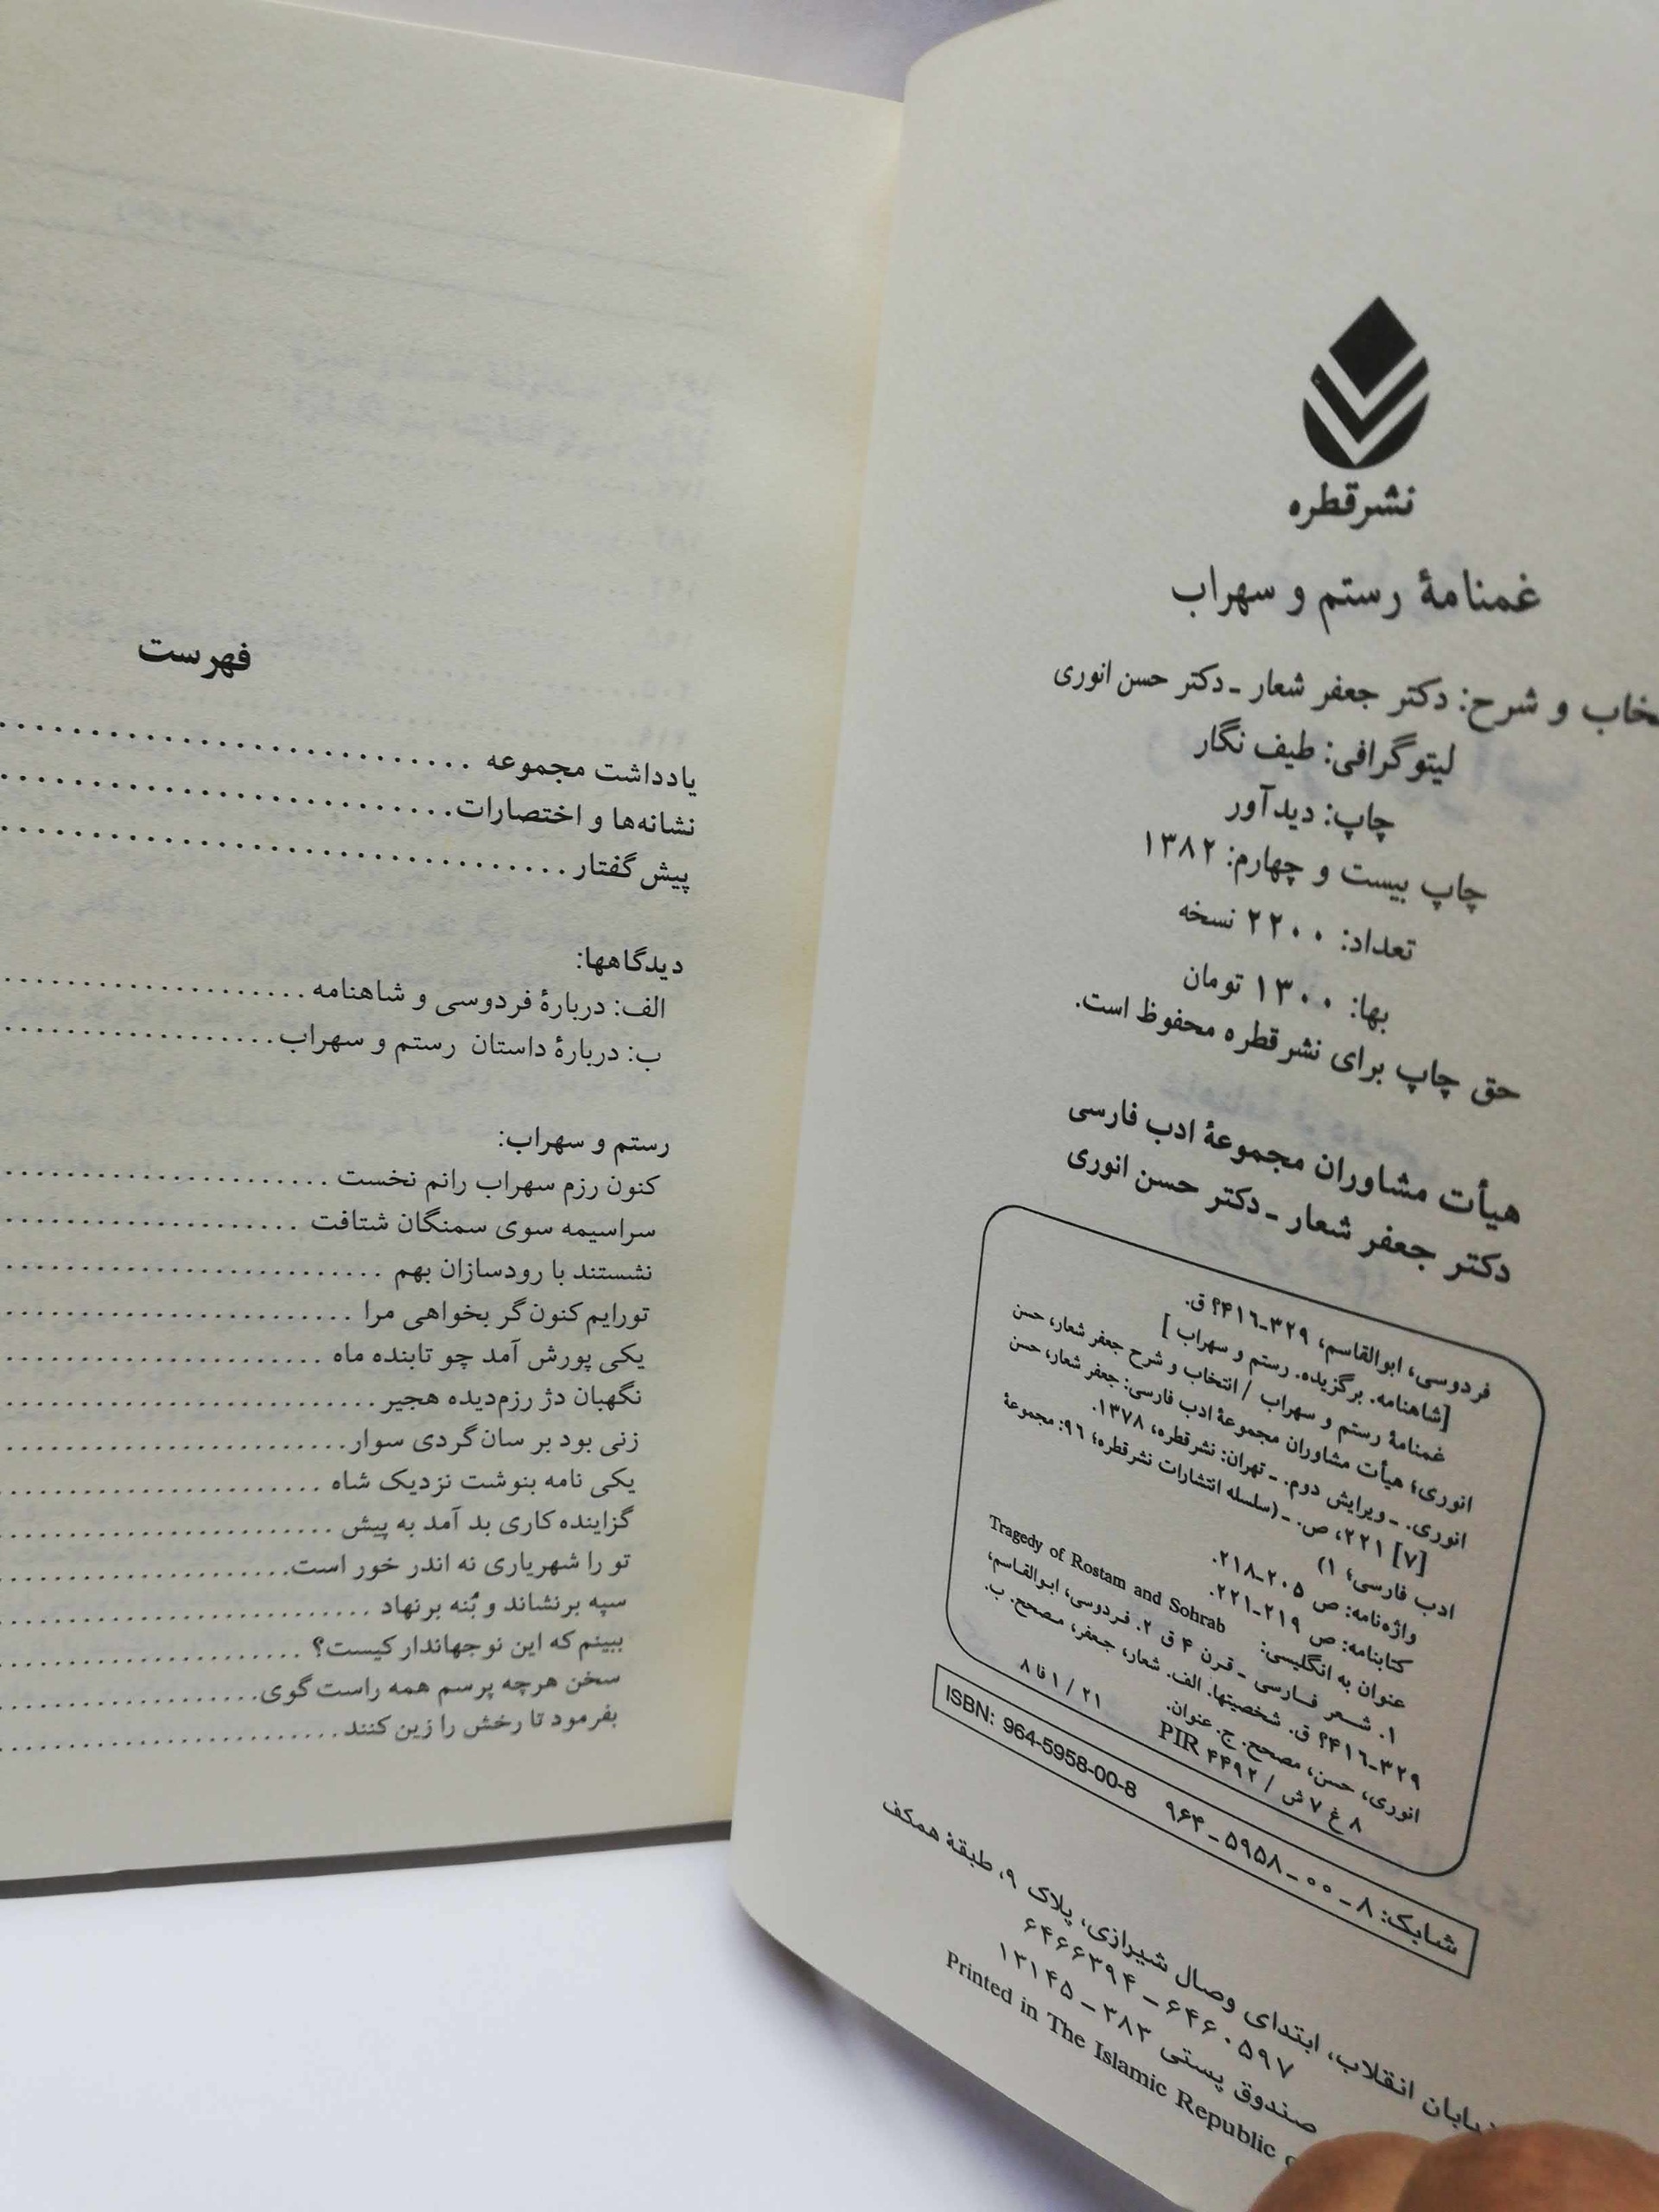 نشر قطره
غمنامهٔ رستم و سهراب
و شرح: دکتر جعفر شعار ـ دکتر حسن انوری
لیتوگرافی: طیف نگار
چاپ: دیدآور
چاپ بیست و چهارم: ۱۳۸۲
تعداد: ۲۲۰۰ نسخه
بها: ۱۳۰۰ تومان
حق چاپ برای نشر قطره محفوظ است.
هیأت مشاوران مجموعهٔ ادب فارسی
دکتر جعفر شعار ـ دکتر حسن انوری
فردوسی، ابوالقاسم، ۳۲۹-۴۱۶؟ ق.
[شاهنامه. برگزیده. رستم و سهراب]
غمنامهٔ رستم و سهراب / انتخاب و شرح جعفر شعار، حسن
انوری؛ هیأت مشاوران مجموعهٔ ادب فارسی: جعفر شعار، حسن
انوری. ـ ویرایش دوم. ـ تهران: نشر قطره، ۱۳۷۸.
[۷] ۲۲۱، ص. ـ (سلسله انتشارات نشر قطره؛ ۹۶: مجموعهٔ
ادب فارسی؛ ۱)
واژه‌نامه: ص ۲۰۵-۲۱۸.
کتابنامه: ص ۲۱۹-۲۲۱.
عنوان به انگلیسی: Tragedy of Rostam and Sohrab
۱. شعر فارسی ـ قرن ۴ ق ۲. فردوسی، ابوالقاسم،
۳۲۹-۴۱۶؟ ق. شخصیتها. الف. شعار، جعفر، مصحح. ب.
انوری، حسن، مصحح. ج. عنوان.
۸ غ ۷ ش / ۴۴۹۲ PIR ۲۱ / ۱ فا ۸
شابک: ۸ ـ ۰۰ ـ ۵۹۵۸ ـ ۹۶۴ ISBN: 964-5958-00-8
انقلاب، ابتدای وصال شیرازی، پلاک ۹، طبقهٔ همکف
۶۴۶۰۵۹۷ ـ ۶۴۶۶۳۹۴
صندوق پستی ۳۸۳ ـ ۱۳۱۴۵
Printed in The Islamic Republic
فهرست
یادداشت مجموعه
نشانه‌ها و اختصارات
پیش گفتار
دیدگاهها:
الف: دربارهٔ فردوسی و شاهنامه
ب: دربارهٔ داستان رستم و سهراب
رستم و سهراب:
کنون رزم سهراب رانم نخست
سراسیمه سوی سمنگان شتافت
نشستند با رودسازان بهم
تورایم کنون گر بخواهی مرا
یکی پورش آمد چو تابنده ماه
نگهبان دژ رزم‌دیده هجیر
زنی بود بر سان گردی سوار
یکی نامه بنوشت نزدیک شاه
گزاینده کاری بد آمد به پیش
تو را شهریاری نه اندر خور است
سپه برنشاند و بُنه برنهاد
ببینم که این نو جهاندار کیست؟
سخن هرچه پرسم همه راست گوی
بفرمود تا رخش را زین کنند